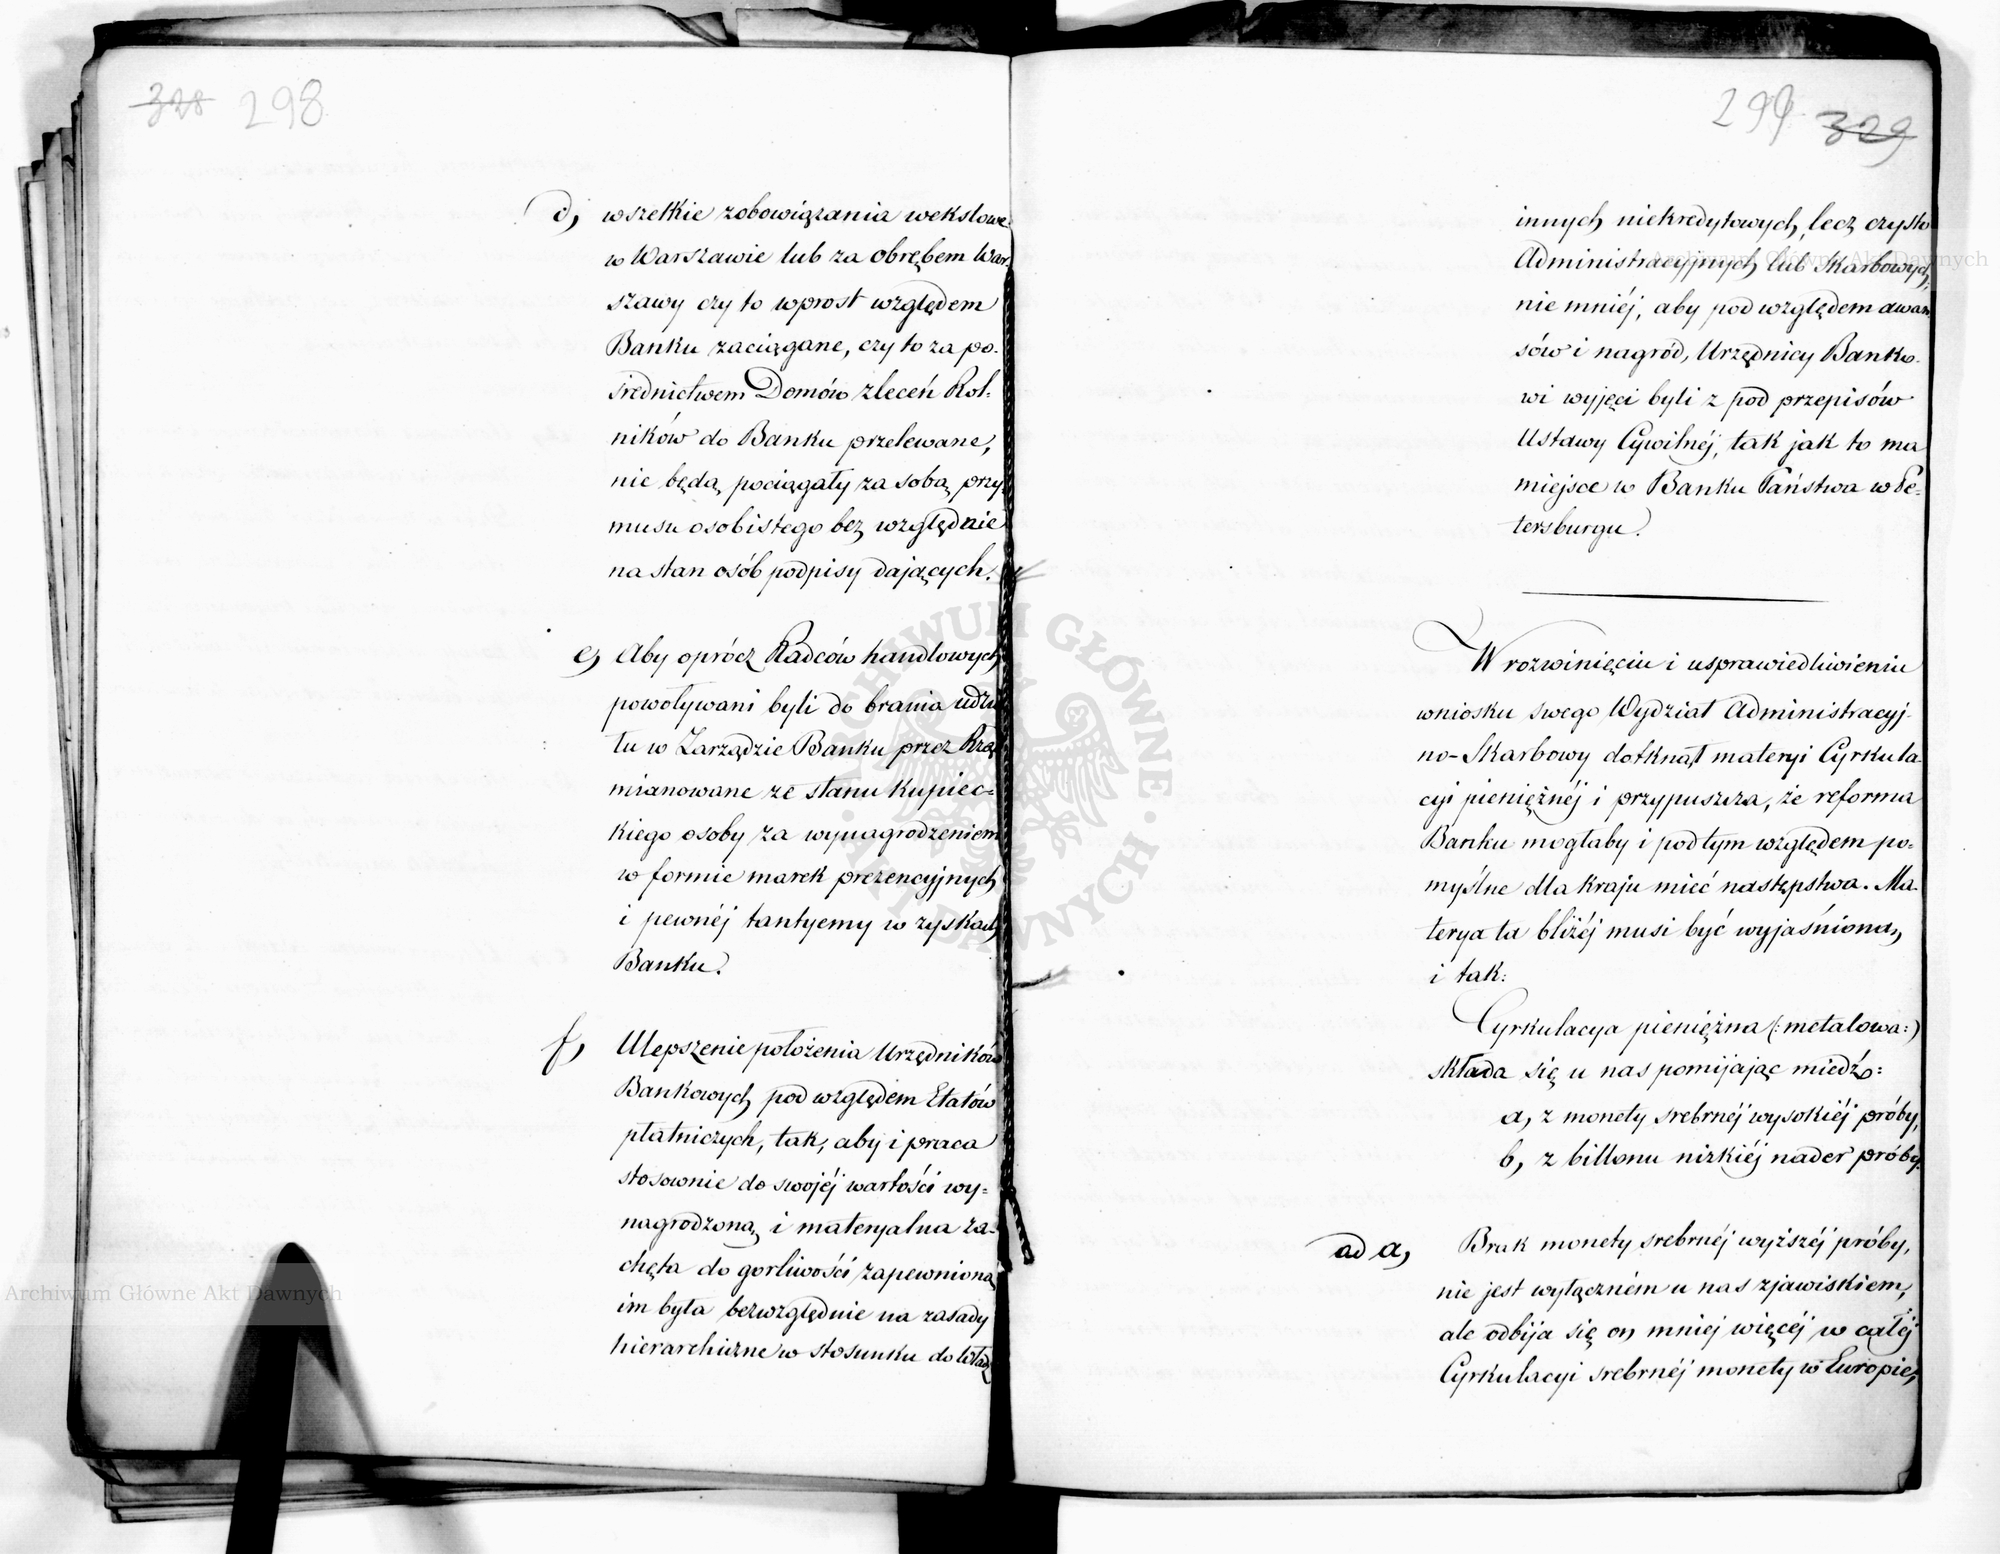 328 298
d, wszelkie zobowiązania wekslowe
w Warszawie lub za obrębem War-
szawy czy to wprost względem
Banku zaciągane, czy to za po-
średnictwem Domów zleceń Rol-
ników do Banku przelewane,
nie będą pociągały za sobą przy-
musu osobistego bez względnie
na stan osób podpisy dających.
e, Aby oprócz Radców handlowych
powoływani byli do brania udzia
łu w Zarządzie Banku przez Rząd
mianowane ze stanu kupiec-
kiego osoby za wynagrodzeniem
w formie marek prezencyjnych
i pewnéj tantyemy w zyskach
Banku.
f, Ulepszenie położenia Urzędników
Bankowych pod względem Etatów
płatniczych, tak, aby i praca
stosownie do swojéj wartości wy-
nagrodzoną i materyalna za-
chęta do gorliwości zapewnioną
im była bezwzględnie na zasady
hierarchiczne w stosunku do Władz
299 329
innych niekredytowych, lecz czysto
Administracyjnych lub Skarbowych;
nie mniéj, aby pod względem awan
sów i nagród, Urzędnicy Banko-
wi wyjęci byli z pod przepisów
Ustawy Cywilnéj, tak jak to ma
miejsce w Banku Państwa w Pe-
tersburgu.
W rozwinięciu i usprawiedliwieniu
wniosku swego Wydział Administracyj-
no-Skarbowy dotknął materyi Cyrkula-
cyi pieniężnéj i przypuszcza, że reforma
Banku mogłaby i pod tym względem po-
myślne dla kraju mieć następstwa. Ma-
terya ta bliżéj musi być wyjaśnioną,
i tak:
Cyrkulacya pieniężna (:metalowa:)
składa się u nas pomijając miedź:
a, z monety srebrnéj wysokiéj próby,
b, z billonu nizkiéj nader próby.
ad a, Brak monety srebrnéj wyższéj próby,
nie jest wyłączném u nas zjawiskiem,
ale odbija się on mniej więcéj w całéj
Cyrkulacyi srebrnéj monety w Europie,
ARCHIWUM GŁÓWNE AKT DAWNYCH
Archiwum Główne Akt Dawnych
Archiwum Główne Akt Dawnych